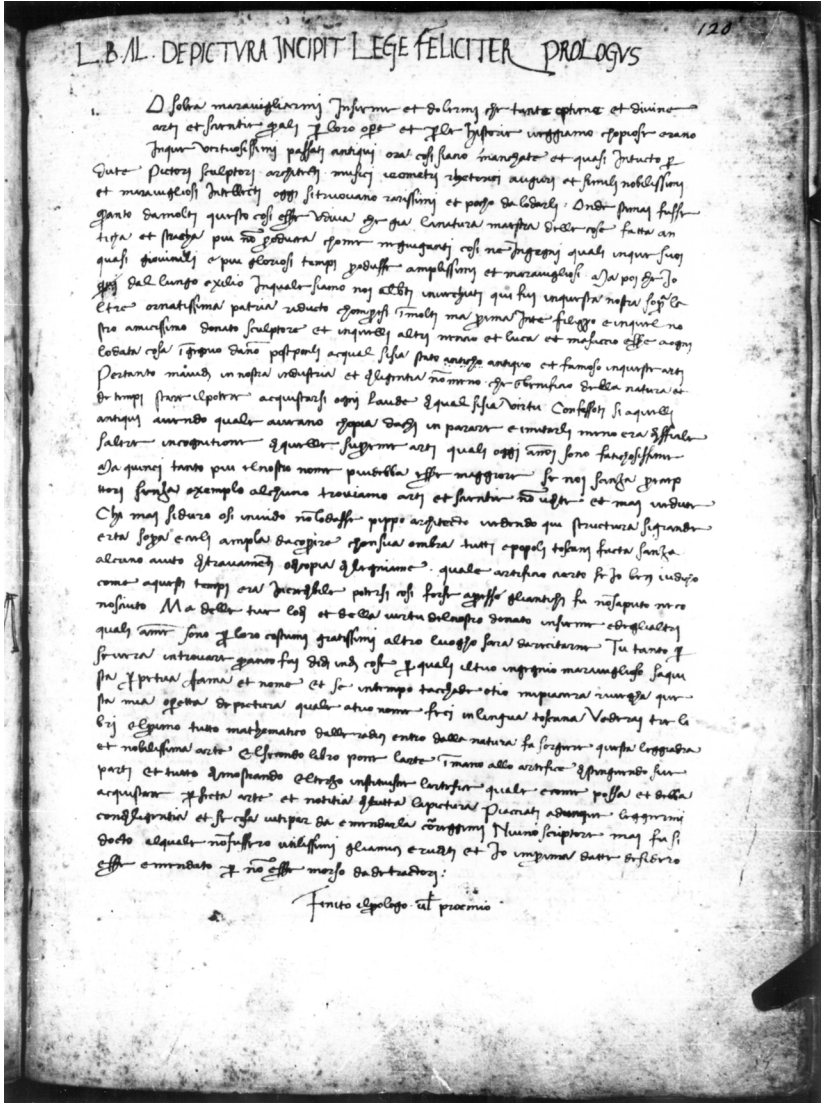 120
L. B. AL. DEPICTVRA INCIPIT LEGE FELICITER PROLOGVS
O soleva maravigliarmi Insieme et dolermi che tante optime et divine
arti et scientie quali p loro ope et ple historie veggiamo chopiose erano
Inque vertuosissimi passati antiqui ora cosi siano manchate et quasi Intucto p
dute Pictori sculptori architecti musici ieometri rhetorici auguri et simili nobilissimi
et maravigliosi Intellecti oggi si truovano rarissimi et pocho da lodarli. Onde stimai fusse
quanto da molti questo cosi essere udiva che gia la natura maestra delle cose fatta an
ticha et stracha piu nō producea chome ne giuganti cosi ne Ingegni quali inque suoi
quasi giovinili e piu gloriosi tempi produsse amplissimi et maravigliosi. Ma poi che Io
dal lungo exilio Inquale siamo noi Alberti invechiati qui fui inquesta nostra sopra le
ltre ornatissima patria riducto chompresi ī molti ma prima Inte filippo e inquel no
stro amicissimo donato sculptore et inquelli altri nencio et luca et masaccio essere a ogni
lodata cosa īgegnio da nō postporli acqual si sia stato anticho antiquo et famoso inqueste arti
Pertanto mavidi in nostra industria et diligentia nō meno che benificio della natura et
de tempi stare il potere acquistarsi ogni laude di qual si sia virtu. Confessoti si aquelli
antiqui avendo quale aveano chopia da chi inparare e imitarli meno era difficile
salire in cognitione di quelle supreme arti quali oggi annoi sono fatichosissime
Ma quinci tanto piu el nostro nome piu debba essere maggiore se noi sanza precep
tori senza exemplo alchuno troviamo arti et scientie nō udite et mai vedute
Chi mai si duro o si invido nō lodasse pippo architecto vedendo qui structura si grande
erta sopra e cieli ampla da coprire chonsua ombra tutti e popoli toscani facta sanza
alcuno aiuto di travamenti o di copia di legniame. quale artificio certo se Io ben iudicho
come aquesti tempi era incredibile potersi cosi forse appresso gli antichi fu nō saputo ne co
nosciuto Ma delle tue lode et della virtu del nostro donato insieme e degli altri
quali a me sono p loro costumi gratissimi altro luogho sara da recitarne Tu tanto p
severa introvare quanto fai di di indi cose p quali il tuo ingegnio maraviglioso sa qui
sta ppetua fama et nome et se intempo taccade otio mi piacera rivegha que
sta mia opetta de pictura quale a tuo nome feci in lingua toscana Vederai tre li
bri el primo tutto mathematico dalle radici entro dalla natura fa sorgere questa leggiadra
et nobilissima arte El secondo libro pone larte ī mano allo artefice distinguendo sue
parti et tutto dimostrando El terzo instituisce lartefice quale e come possa et debba
acquistare pfecta arte et notitia di tutta la pictura Piacciati adunque leggermi
con diligentia et se cosa vi ti par da emendarla correggimi Niuno scriptore mai fu si
docto al quale nō fussero utilissimi gli amici eruditi et Io imprima datte desidero
essere emendato p nō essere morso da detractori:
Fenito il prolago vel proemio